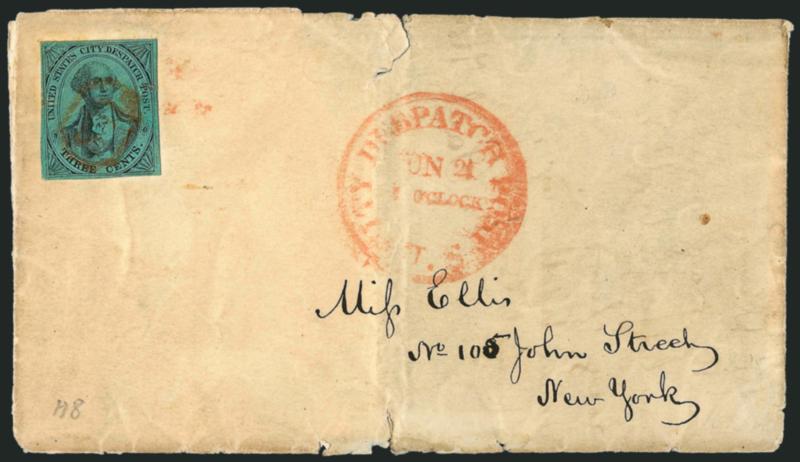 UNITED STATES CITY DESPATCH POST.
THREE CENTS.
CITY DESPATCH POST
JUN 21
O'CLOCK
Miſs Ellis
No 105 John Street
New York